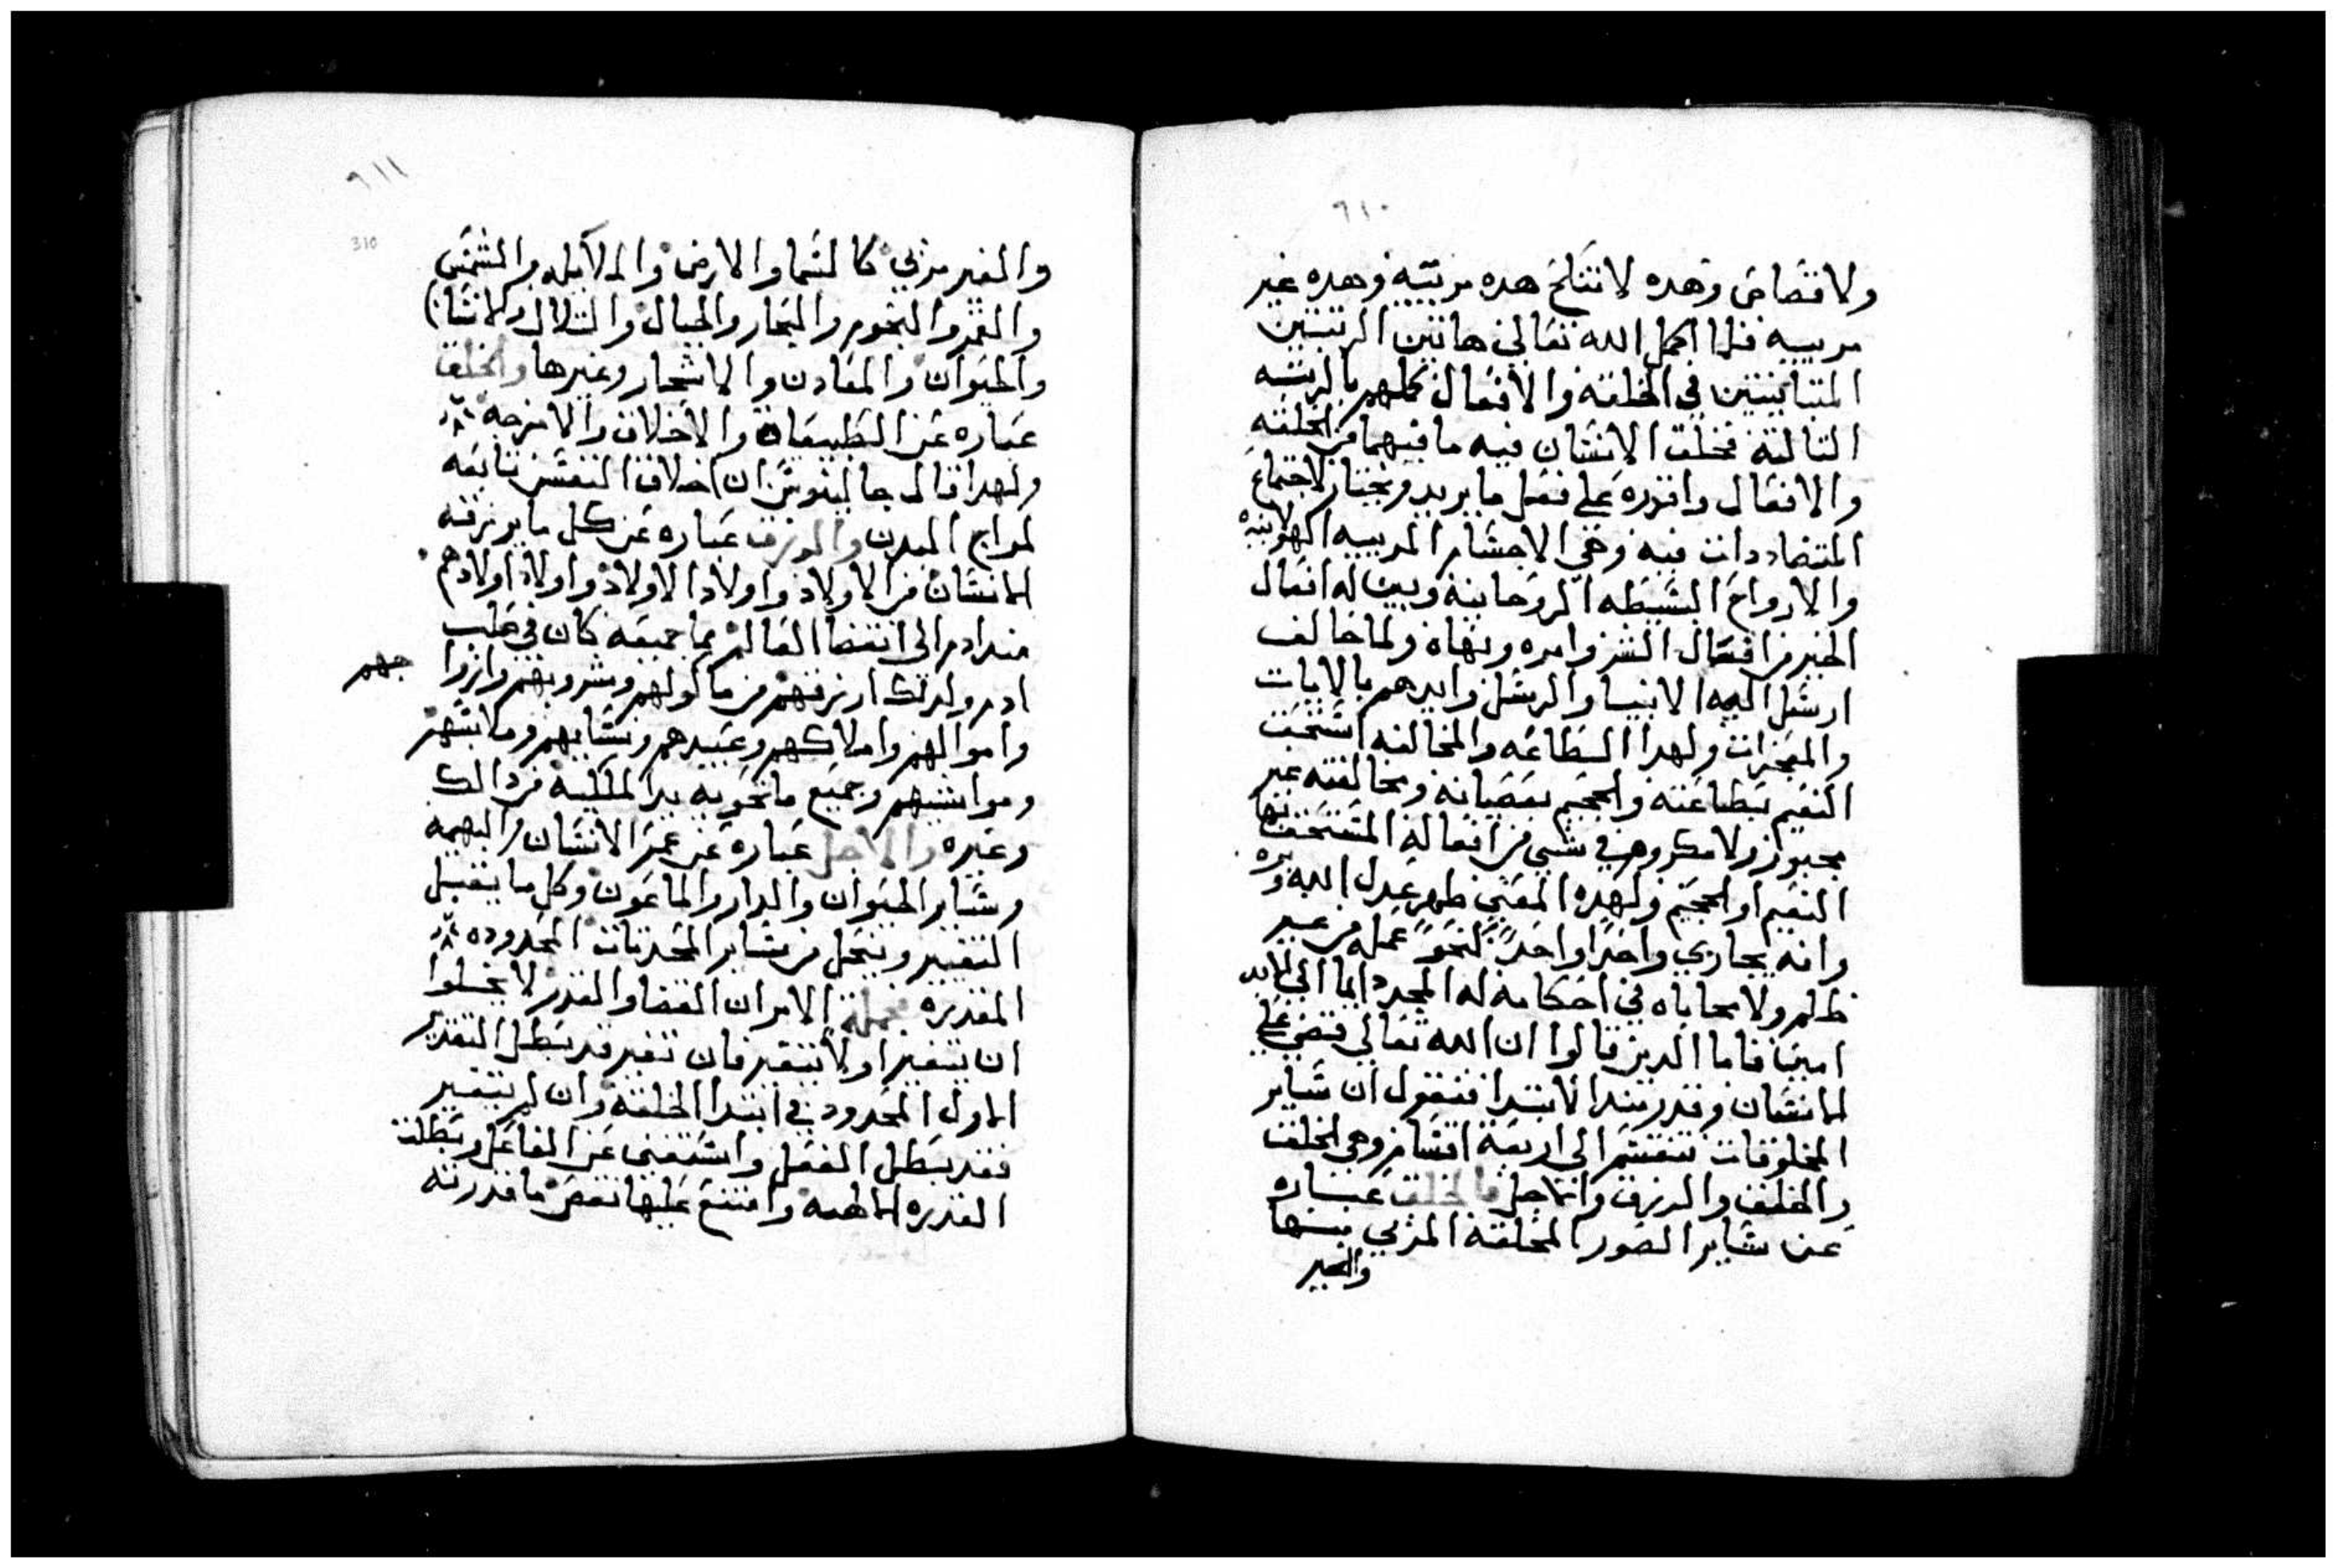 ٦١٠
ولا قصاص وهده لا تتلخ هده مرتبه وهده غير
مرتبيه فلما اكمل الله تعالي هاتين الرتبتين
المتباينتين في الخلقه والافعال كملهم بالرتبه
التالته فخلق الانسان فيه ما فيهما من الخلقه
والافعال واقدره علي فعل ما يريد ويختار لاجتماع
المتضاددات فيه وهي الاجسام المرييه الهيولانيه
والارواح البسيطه الروحانيه وبين له افعال
الخير من افعال الشر وامره ونهاه ولما خالف
ارسل اليه الانبيا والرسل وايدهم بالايات
والمعجزات ولهدا الطاعه والمخالفه استحق
النعيم بطاعته والجحيم بعصيانه ومخالفته غير
مجبور ولا مكروه في شي من افعاله المستحق بها
النعيم او الجحيم ولهده المعني ظهر عدل الله وبره
وانه يجازي واحدًا واحدًا كنحو عمله من غير
ظلم ولا محاباه في احكامه له المجد دايما الي الابد
امين فاما الدين قالوا ان الله تعالي قضي علي
الانسان وقدر مند الابتدا فنقول ان ساير
المخلوقات تنقسم الي اربعة اقسام وهي الخلق
والخلق والرزق والاجل فالخلق عباره
عن ساير الصور المخلقه المرئي منها
والغير
٦١١
310
والغير مرئي كالسما والارض والملايكه والشمس
والقمر والنجوم والبحار والجبال والتلال والانسان
والحيوان والمعادن والاشجار وغيرها والخلق
عباره عن الطبيعات والاخلاق والامزجه
ولهدا قال جالينوس ان اخلاق النفس تابعه
لمزاج البدن والرزق عباره عن كل ما يرزقه
الانسان من الاولاد واولاد الاولاد واولاد اولادهم
مند ادم الي انقضا العالم بما جميعه كان في صلب
ادم ولدلك ارزقهم من ماكولهم ومشروبهم وازوا
جهم
واموالهم واملاكهم وعبيدهم ونسايهم وملابسهم
ومواشيهم وجميع ما تحويه يد الملكيه من دالك
وغيره والاجل عباره عن عمر الانسان والبهيمه
وساير الحيوان والدار والماعون وكل ما يقبل
التغيير وينحل من ساير المحدتات المحدوده
المقدره فجملة الامر ان القضا والقدر لا يخلوا
ان يتغير او لا يتغير فان تغير قد بطل التقدير
الاول المحدود في ابتدا الخلقه وان لم يتغير
فقد بطل الفعل واستغني عن الفاعل وبطلت
القدره الالهيه وامتنع عليها نقض ما قدرته